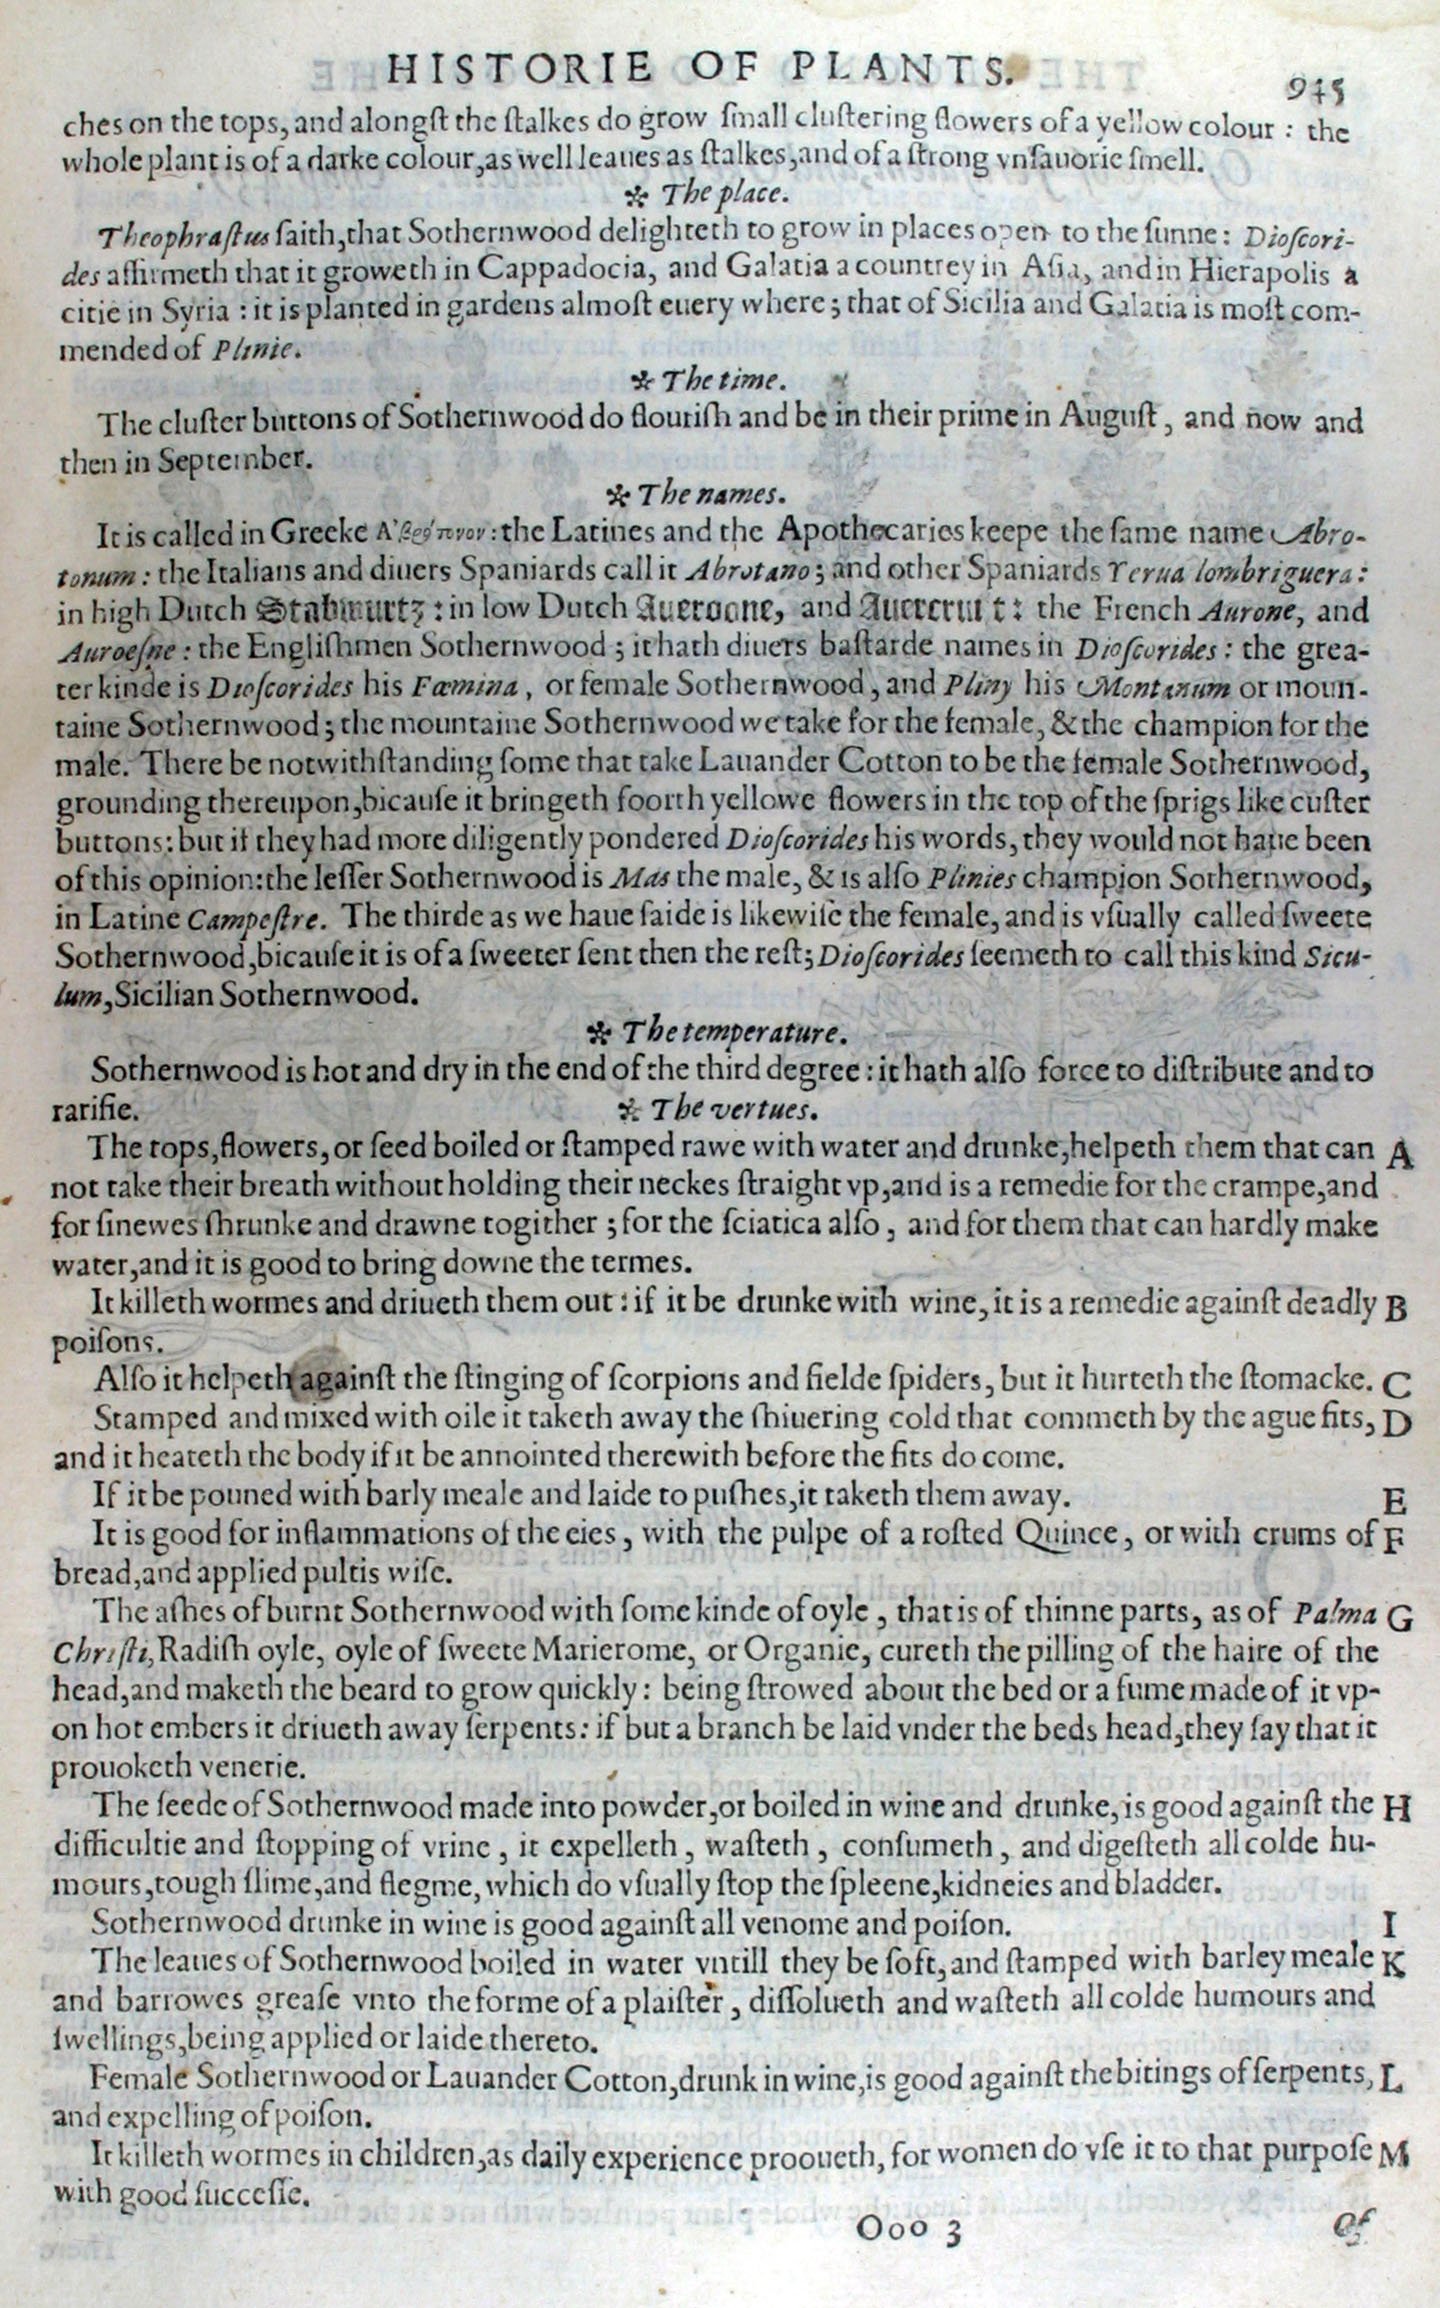 HISTORIE OF PLANTS. 945
ches on the tops, and alongſt the ſtalkes do grow ſmall cluſtering flowers of a yellow colour : the
whole plant is of a darke colour, as well leaues as ſtalkes, and of a ſtrong vnſauorie ſmell.
✲ The place.
Theophraſtus ſaith, that Sothernwood delighteth to grow in places open to the ſunne: Dioſcori-
des affirmeth that it groweth in Cappadocia, and Galatia a countrey in Aſia, and in Hierapolis a
citie in Syria : it is planted in gardens almoſt euery where; that of Sicilia and Galatia is moſt com-
mended of Plinie.
✲ The time.
The cluſter buttons of Sothernwood do flouriſh and be in their prime in Auguſt, and now and
then in September.
✲ The names.
It is called in Greeke : the Latines and the Apothecaries keepe the ſame name Abro-
tonum: the Italians and diuers Spaniards call it Abrotano; and other Spaniards Yerua lombriguera:
in high Dutch Stabwurtz: in low Dutch Aueroone, and the French Aurone, and
Auroeſne: the Engliſhmen Sothernwood; it hath diuers baſtarde names in Dioſcorides: the grea-
ter kinde is Dioſcorides his Fœmina, or female Sothernwood, and Pliny his Montanum or moun-
taine Sothernwood; the mountaine Sothernwood we take for the female, & the champion for the
male. There be notwithſtanding ſome that take Lauander Cotton to be the female Sothernwood,
grounding thereupon, bicauſe it bringeth foorth yellowe flowers in the top of the ſprigs like cuſter
buttons: but if they had more diligently pondered Dioſcorides his words, they would not haue been
of this opinion: the leſſer Sothernwood is Mas the male, & is alſo Plinies champion Sothernwood,
in Latine Campeſtre. The thirde as we haue ſaide is likewiſe the female, and is vſually called ſweete
Sothernwood, bicauſe it is of a ſweeter ſent then the reſt; Dioſcorides ſeemeth to call this kind Sicu-
lum, Sicilian Sothernwood.
✲ The temperature.
Sothernwood is hot and dry in the end of the third degree: it hath alſo force to diſtribute and to
rarifie. ✲ The vertues.
The tops, flowers, or ſeed boiled or ſtamped rawe with water and drunke, helpeth them that can A
not take their breath without holding their neckes ſtraight vp, and is a remedie for the crampe, and
for ſinewes ſhrunke and drawne togither; for the ſciatica alſo, and for them that can hardly make
water, and it is good to bring downe the termes.
It killeth wormes and driueth them out: if it be drunke with wine, it is a remedie againſt deadly B
poiſons.
Alſo it helpeth againſt the ſtinging of ſcorpions and fielde ſpiders, but it hurteth the ſtomacke. C
Stamped and mixed with oile it taketh away the ſhiuering cold that commeth by the ague fits, D
and it heateth the body if it be annointed therewith before the fits do come.
If it be pouned with barly meale and laide to puſhes, it taketh them away. E
It is good for inflammations of the eies, with the pulpe of a roſted Quince, or with crums of F
bread, and applied pultis wiſe.
The aſhes of burnt Sothernwood with ſome kinde of oyle, that is of thinne parts, as of Palma G
Chriſti, Radiſh oyle, oyle of ſweete Marierome, or Organie, cureth the pilling of the haire of the
head, and maketh the beard to grow quickly: being ſtrowed about the bed or a fume made of it vp-
on hot embers it driueth away ſerpents: if but a branch be laid vnder the beds head, they ſay that it
prouoketh venerie.
The ſeede of Sothernwood made into powder, or boiled in wine and drunke, is good againſt the H
difficultie and ſtopping of vrine, it expelleth, waſteth, conſumeth, and digeſteth all colde hu-
mours, tough ſlime, and flegme, which do vſually ſtop the ſpleene, kidneies and bladder.
Sothernwood drunke in wine is good againſt all venome and poiſon. I
The leaues of Sothernwood boiled in water vntill they be ſoft, and ſtamped with barley meale K
and barrowes greaſe vnto the forme of a plaiſter, diſſolueth and waſteth all colde humours and
ſwellings, being applied or laide thereto.
Female Sothernwood or Lauander Cotton, drunk in wine, is good againſt the bitings of ſerpents, L
and expelling of poiſon.
It killeth wormes in children, as daily experience prooueth, for women do vſe it to that purpoſe M
with good ſucceſſe.
Ooo 3 Of